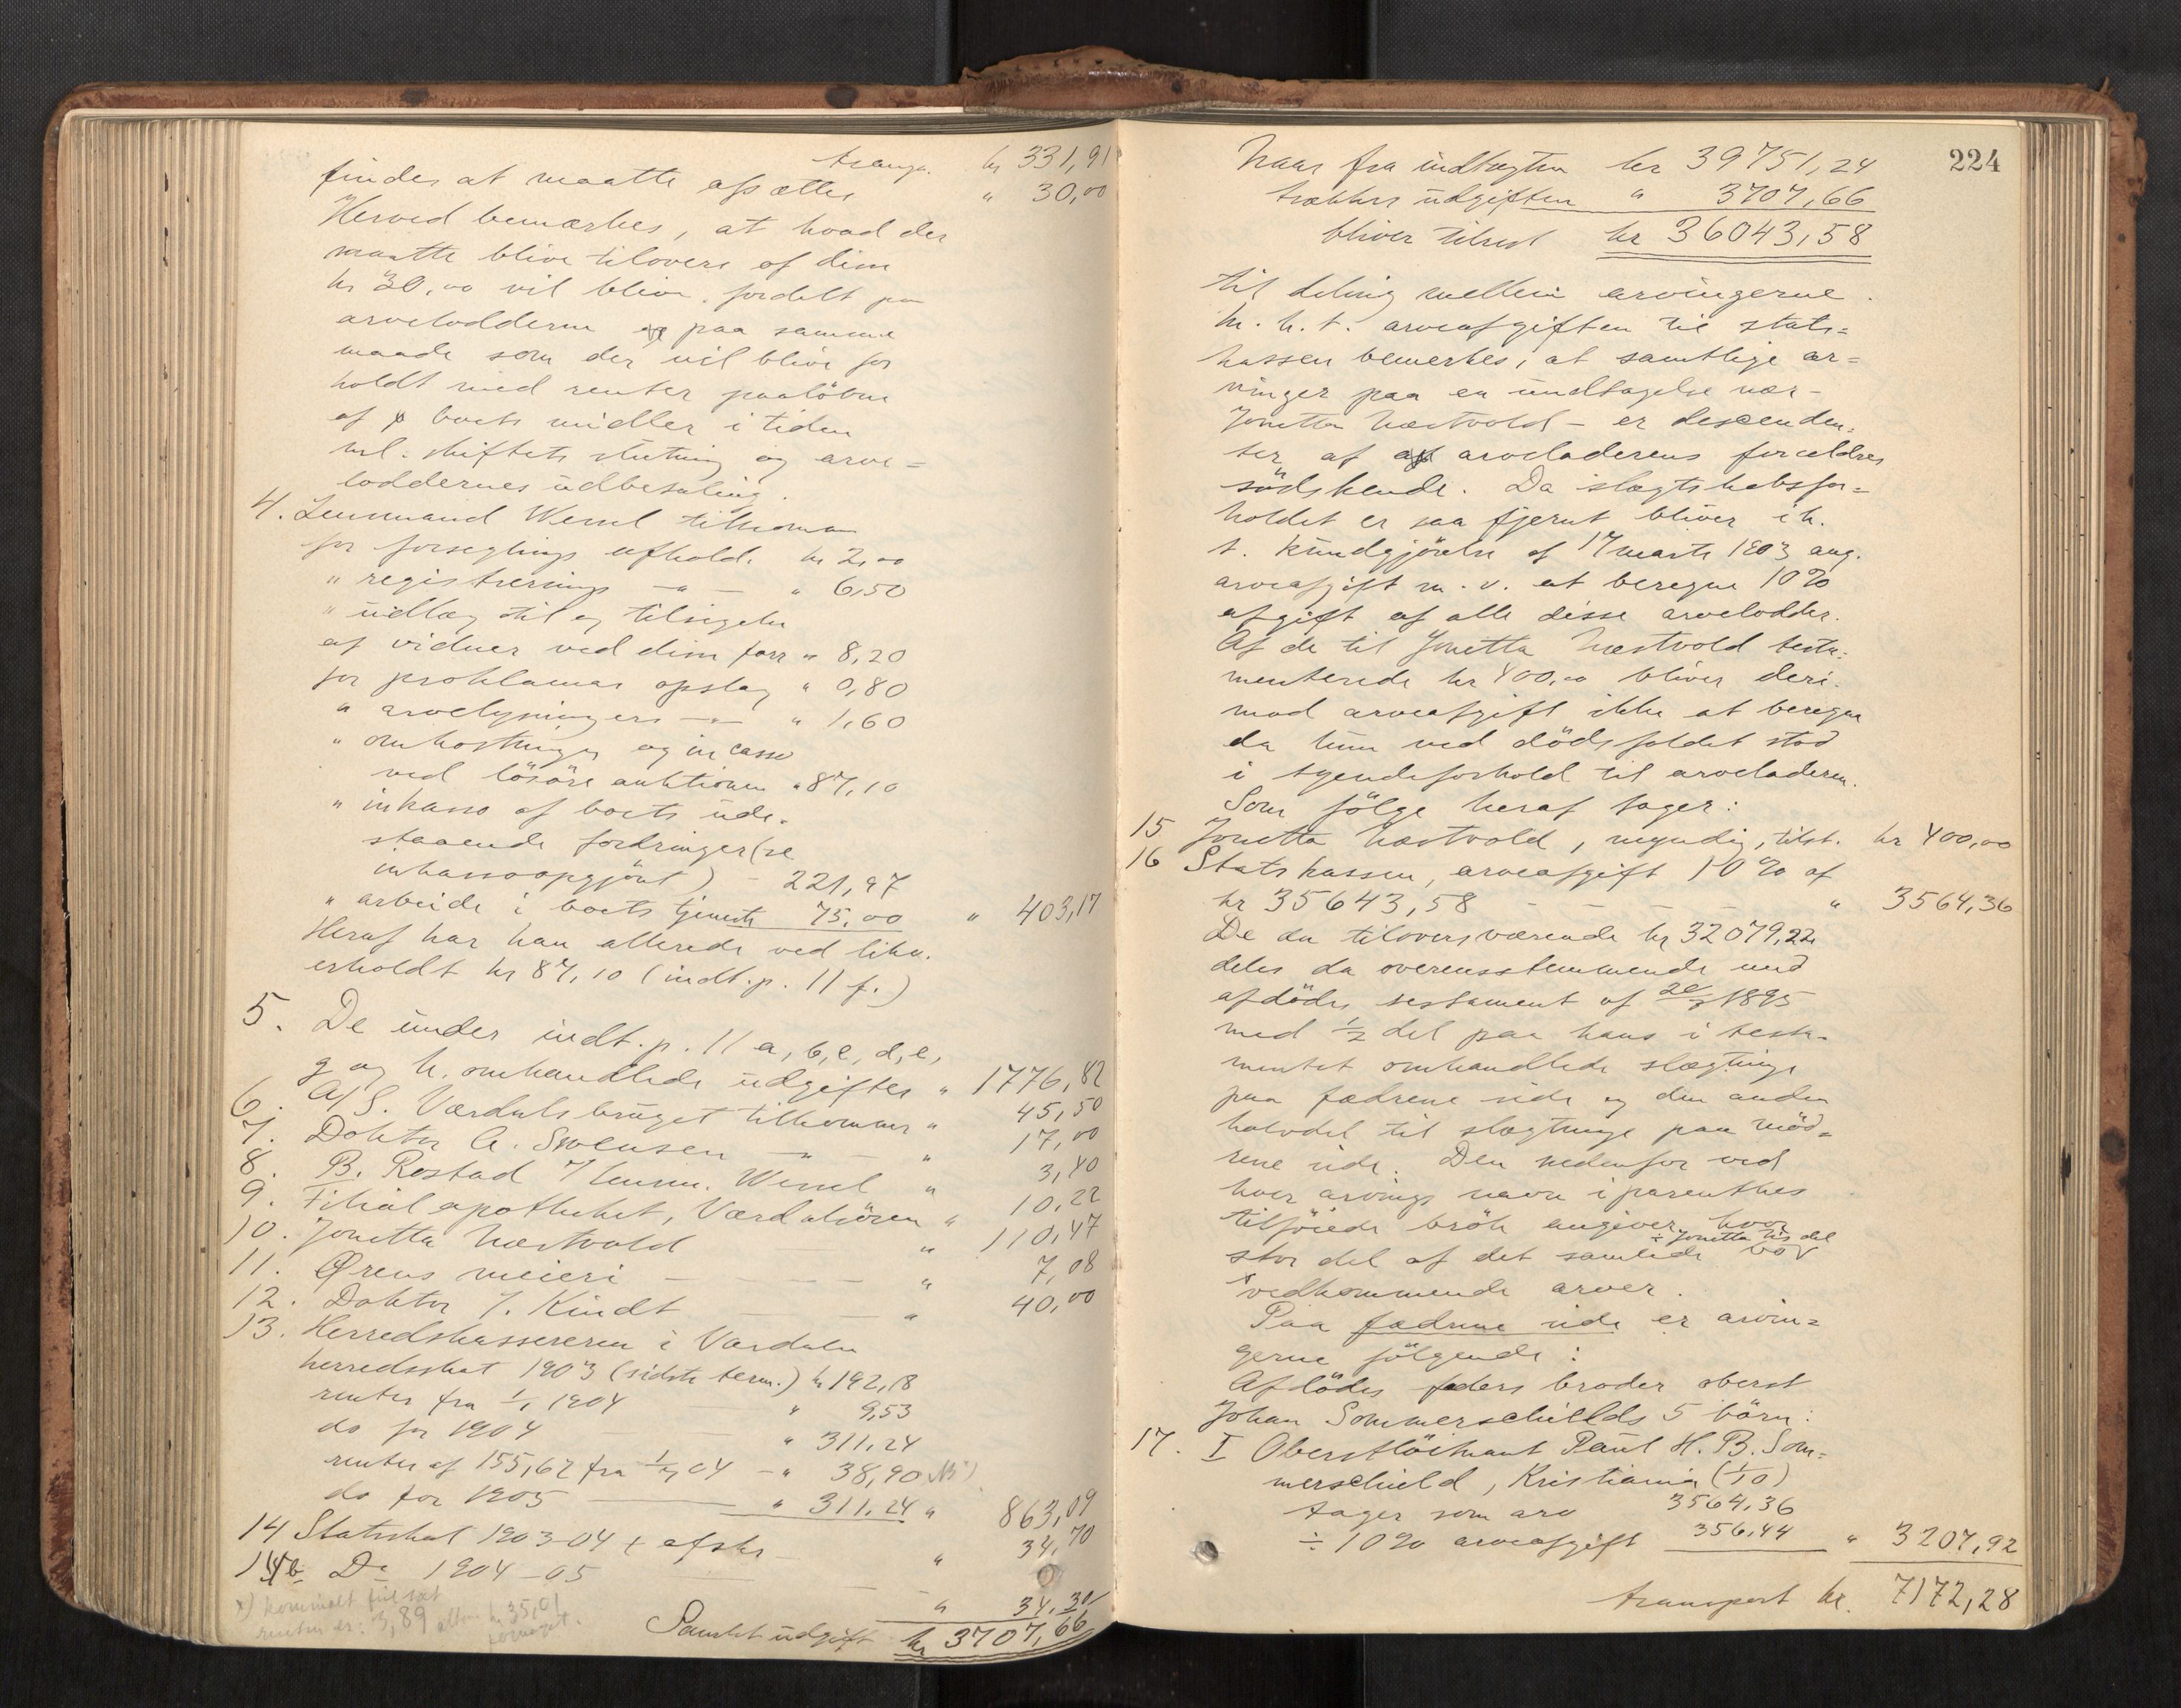 transp. kr 331,91
findes at maatte afsættes " 30,00
Herved bemærkes, at hvad der
maatte blive tilovers af disse
kr 30,00 vil blive fordelt paa
arvelodderne paa samme
maade som der vil blive for
holdt med renter paaløbne
af boets midler i tiden
ml. skiftets slutning og arve=
loddernes udbetaling.
4. Lensmand Wessel tilkommer
for forseglings afhold. kr 2,00
" registrerings — " — " 6,50
" udlæg til og tilsigelse
af vidner ved dim forr " 8,20
for proklamas opslag " 0,80
" arvelysningers — " — " 1,60
" omkostninger og incasso
ved løsøre auktionen " 87,10
" inkasso af boets ude-
staaende fordringer (se
inkassoopgjört) - 221,97
" arbeide i boets tjeneste 75,00 " 403,17
Heraf har han allerede ved likv.
erholdt kr 87,10 (indt.p. 11 f.)
5. De under indt.p. 11 a, b, c, d, e,
g og h. omhandlede udgifter " 1776,82
6. A/S. Værdalsbruget tilkommer " 45,50
7. Doktor A. Svensen — " — " 17,00
8. B. Rostad / lensm. Wessel " 3,40
9. Filialapotheket, Værdalsören " 10,22
10. Jonetta Næstvold " 110,47
11. Ørens meieri — — — " 7,08
12. Doktor J. Kindt — — " 40,00
13. Herredskassereren i Værdalen
herredsskat 1903 (sidste term.) kr 192,18
renter fra 1/1 1904 " 9,53
do for 1904 " 311,24
renter af 155,62 fra 1/7 04 - " 38,90 x)
do for 1905 — " 311,24 " 863,09
14 Statsskat 1903-04 + afskr — " 34,70
14b Do 1904-05 — — " 34,30
x)
renten er: 3,89 kr 35,01
Samlet udgift kr 3707,66
224
Naar fra indtægten kr 39751,24
trækkes udgiften " 3707,66
bliver tilrest kr 36043,58
til deling mellem arvingerne.
M. h. t. arveafgiften til stats=
kassen bemerkes, at samtlige ar=
vinger paa en undtagelse nær -
Jonetta Næstvold - er descenden=
ter af arveladerens forældres
södskende. Da slægtskabsfor=
holdet er saa fjernt bliver i h.
t. kundgjörelse af 17 marts 1903 ang.
arveafgift m. v. at beregne 10%
afgift af alle disse arvelodder.
Af de til Jonetta Næstvold testa=
menterede kr 400,00 bliver deri-
mod arveafgift ikke at beregne
da hun ved dödsfaldet stod
i tyendeforhold til arveladeren.
Som fölge heraf tager:
15 Jonetta Næstvold, myndig, tilst. kr 400,00
16 Statskassen, arveafgift 10% af
kr 35643,58 - - - - " 3564,36
De da tiloversværende kr 32079,22
deles da overensstemmende med
afdödes testament af 20/3 1895
med 1/2 del paa hans i testa-
mentet omhandlede slægtninge
paa fædrene side og den anden
halvdel til slægtninge paa möd=
rene side. Den nedenfor ved
hver arvings navn i parenthes
tilföiede brök angiver, hvor
÷ Jonetta Ns del
stor del af det samlede bo
vedkommende arver.
Paa fædrene side er arvin=
gerne fölgende:
Afdödes faders broder oberst
Johan Sommerschields 5 börn:
17. I Oberstlöitnant Paul H. B. Som=
merschield, Kristiania (1/10)
tager som arv 3564,36
÷ 10% arveafgift 356,44 " 3207,92
transport kr. 7172,28